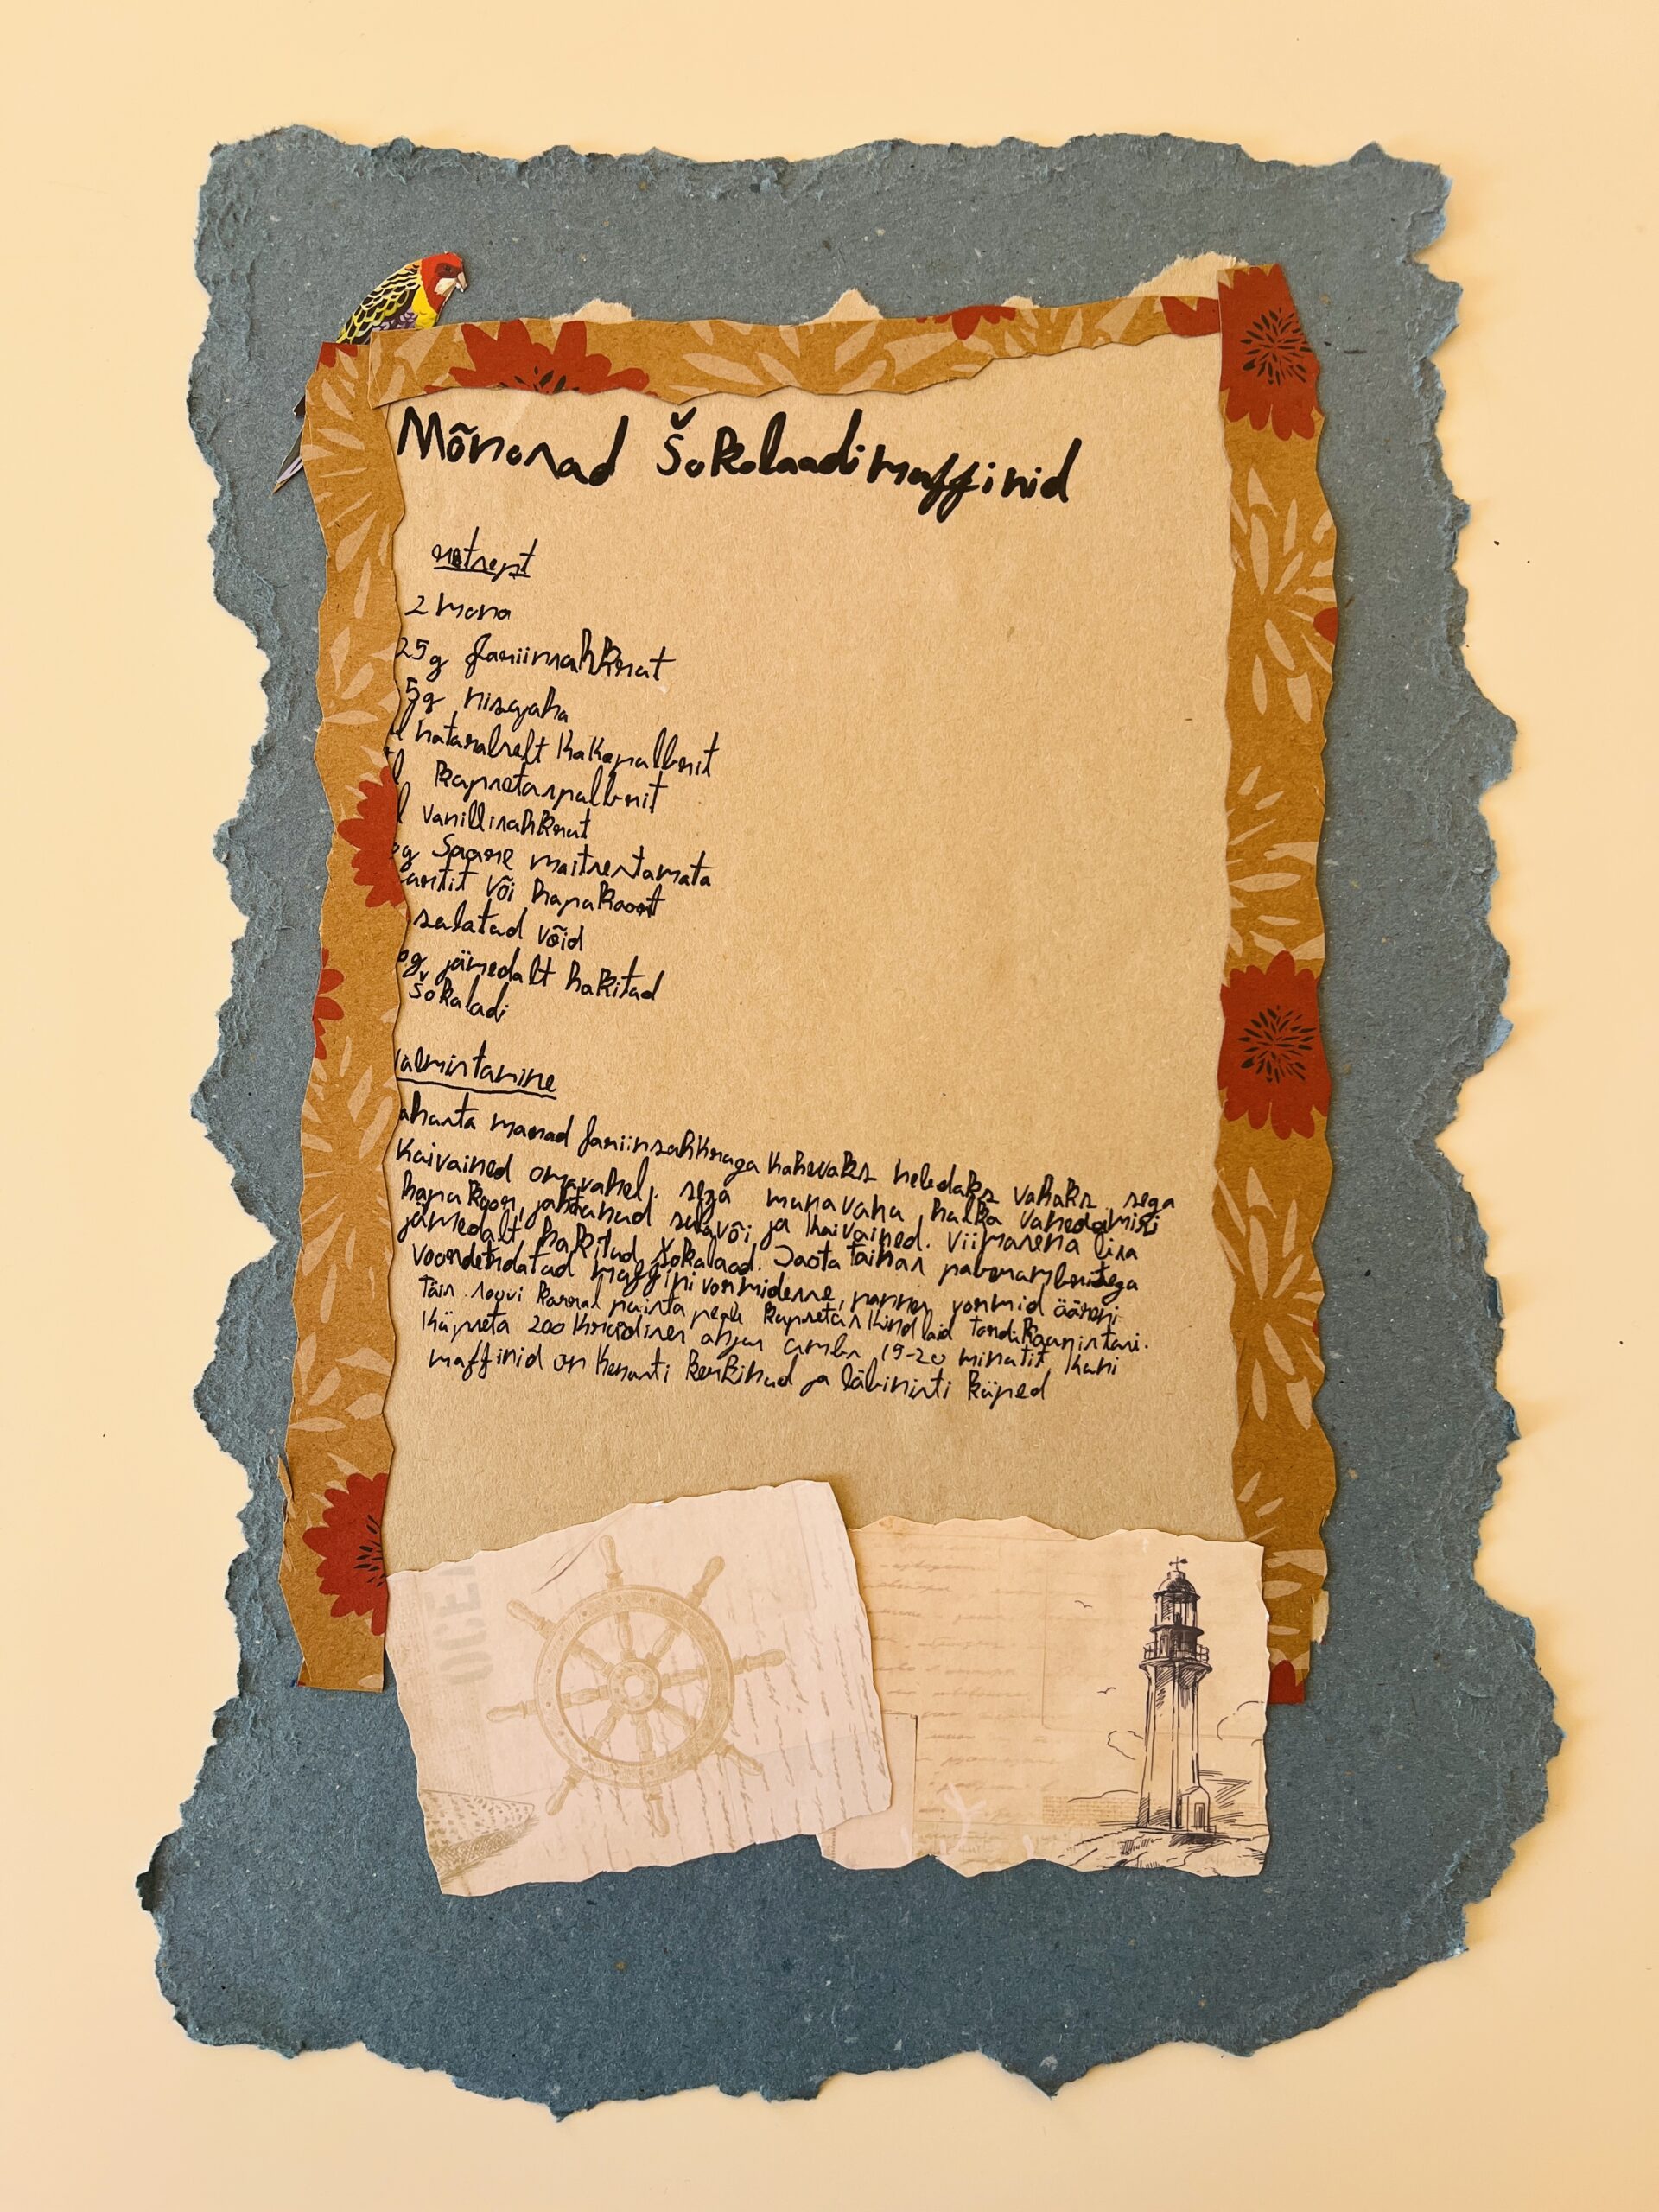 Mõnusad Šokolaadimuffinid
retsept
2 muna
25g fariinsuhkrut
5g nisujahu
l naturalselt kakapulbrit
l küpsetuspulbrit
l vanillisuhkrut
0g Saare maitsestamata
urtit või hapukoort
sulatud võid
0g jämedalt hakitud
šokaladi
Valmistamine
ahusta munad fariinsuhkruga kohevaks heledaks vahuks sega
kaivained omavahel. sega munavahu hulka vaheldumisi
hapukoor, jahtunud sulavõi ja kuivained. Viimasena lisa
jämedalt hakitud šokalaad. Jaota tainas paberümbristega
vooderdatud muffini vormidesse, pannes vormid ääreni
täis. soovi korral puista peale küpsetuskindlaid tordikaunistusi.
küpseta 200 kraadises ahjus umbes 19-20 minutit, kuni
muffinid on kenasti kerkinud ja läbinisti küpsed
OCEA